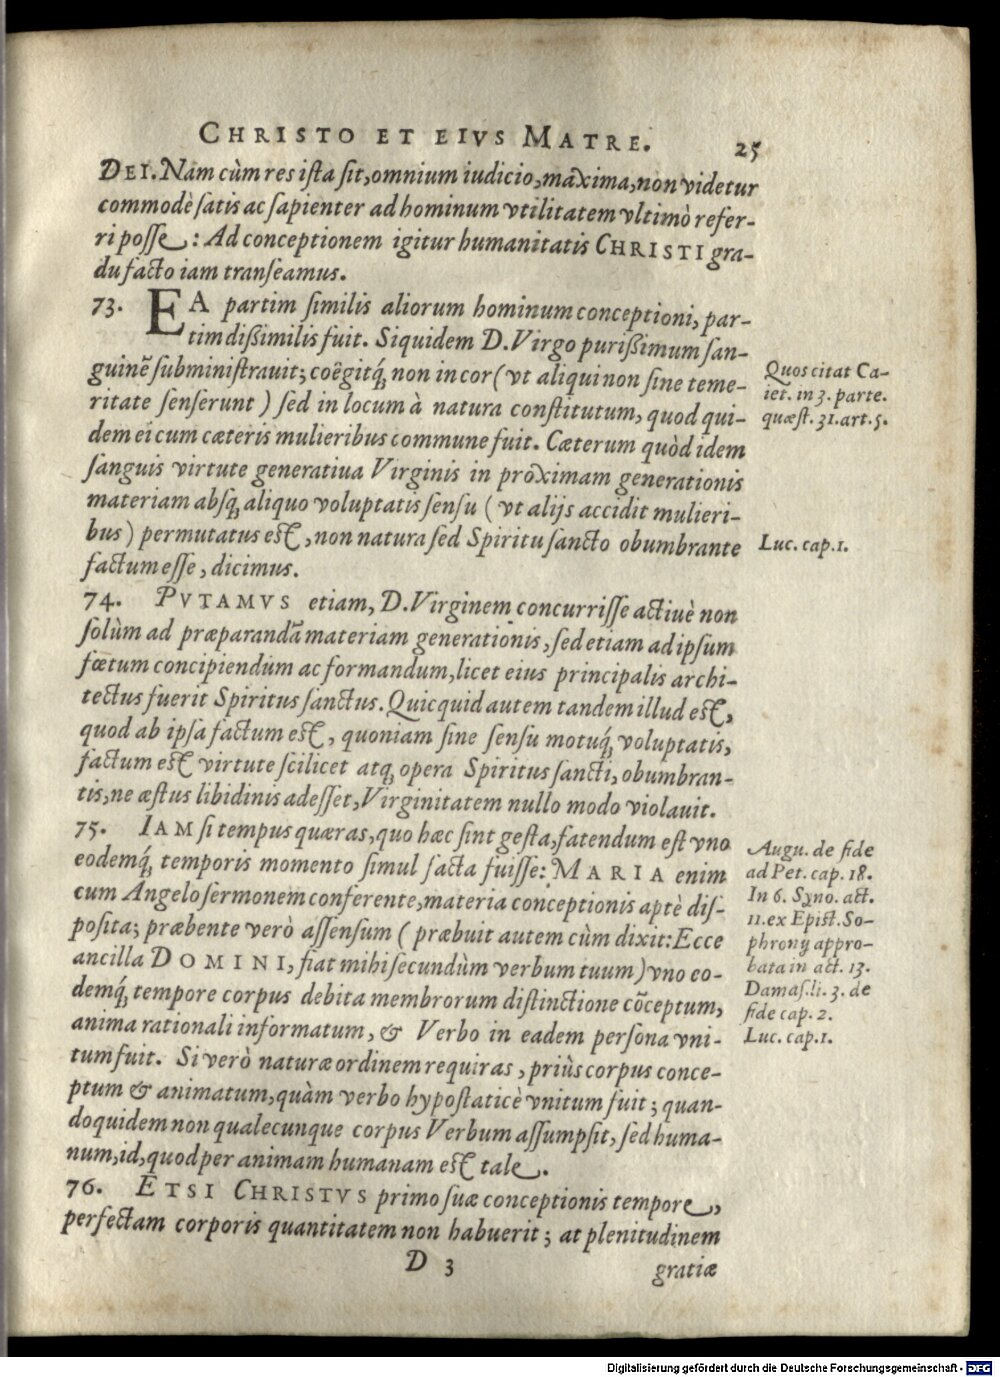 CHRISTO ET EIVS MATRE. 25
DEI. Nam cùm res ista sit, omnium iudicio, maxima, non videtur
commodè satis ac sapienter ad hominum vtilitatem vltimò refer-
ri posse: Ad conceptionem igitur humanitatis CHRISTI gra-
du facto iam transeamus.
73. EA partim similis aliorum hominum conceptioni, par-
tim dißimilis fuit. Siquidem D. Virgo purißimum san-
guinē subministrauit; coëgitq́; non in cor (vt aliqui non sine teme-
ritate senserunt) sed in locum à natura constitutum, quod qui-
dem ei cum cæteris mulieribus commune fuit. Cæterum quòd idem
sanguis virtute generatiua Virginis in proximam generationis
materiam absq; aliquo voluptatis sensu (vt alijs accidit mulieri-
bus) permutatus est, non natura sed Spiritu sancto obumbrante
factum esse, dicimus.
Quos citat Ca-
iet. in 3. parte.
quæst. 31. art. 5.
Luc. cap. 1.
74. PVTAMVS etiam, D. Virginem concurrisse actiuè non
solùm ad præparandā materiam generationis, sed etiam ad ipsum
fœtum concipiendum ac formandum, licet eius principalis archi-
tectus fuerit Spiritus sanctus. Quicquid autem tandem illud est,
quod ab ipsa factum est, quoniam sine sensu motuq́; voluptatis,
factum est virtute scilicet atq; opera Spiritus sancti, obumbran-
tis, ne æstus libidinis adesset, Virginitatem nullo modo violauit.
75. IAM si tempus quæras, quo hæc sint gesta, fatendum est vno
eodemq́; temporis momento simul facta fuisse: MARIA enim
cum Angelo sermonem conferente, materia conceptionis aptè dis-
posita; præbente verò assensum (præbuit autem cùm dixit: Ecce
ancilla DOMINI, fiat mihi secundùm verbum tuum) vno eo-
demq́; tempore corpus debita membrorum distinctione cōceptum,
anima rationali informatum, & Verbo in eadem persona vni-
tum fuit. Si verò naturæ ordinem requiras, priùs corpus conce-
ptum & animatum, quàm verbo hypostaticè vnitum fuit; quan-
doquidem non qualecunque corpus Verbum assumpsit, sed huma-
num, id, quod per animam humanam est tale.
Augu. de fide
ad Pet. cap. 18.
In 6. Syno. act.
11. ex Epist. So-
phronij appro-
bata in act. 13.
Damas. li. 3. de
fide cap. 2.
Luc. cap. 1.
76. ETSI CHRISTVS primo suæ conceptionis tempore,
perfectam corporis quantitatem non habuerit; at plenitudinem
D 3 gratiæ
Digitalisierung gefördert durch die Deutsche Forschungsgemeinschaft - DFG